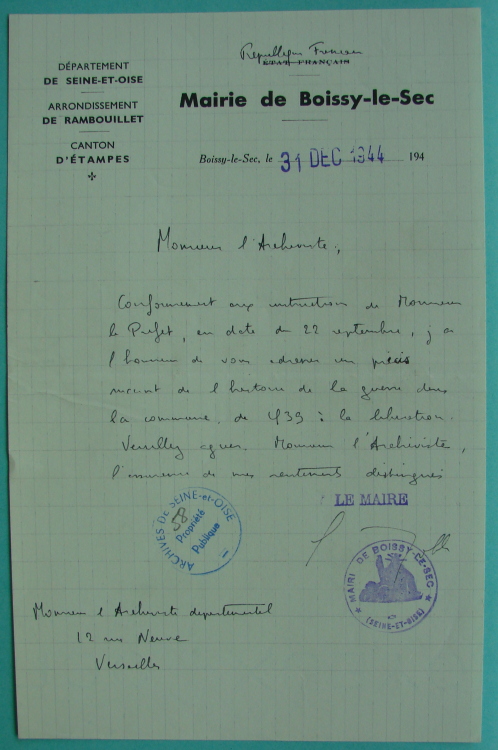 DÉPARTEMENT
DE SEINE-ET-OISE
ARRONDISSEMENT
DE RAMBOUILLET
CANTON
D'ÉTAMPES
République Française
ÉTAT FRANÇAIS
Mairie de Boissy-le-Sec
Boissy-le-Sec, le 31 DEC 1944 194
Monsieur l'Archiviste,
Conformément aux instructions de Monsieur
le Préfet, en date du 22 septembre, j'ai
l'honneur de vous adresser un précis
succinct de l'histoire de la guerre dans
la commune, de 1939 à la libération.
Veuillez agréer, Monsieur l'Archiviste,
l'assurance de mes sentiments distingués
LE MAIRE
ARCHIVES DE SEINE-et-OISE
58
Propriété
Publique
MAIRIE DE BOISSY-LE-SEC
(SEINE-ET-OISE)
Monsieur l'Archiviste départemental
12 rue Neuve
Versailles